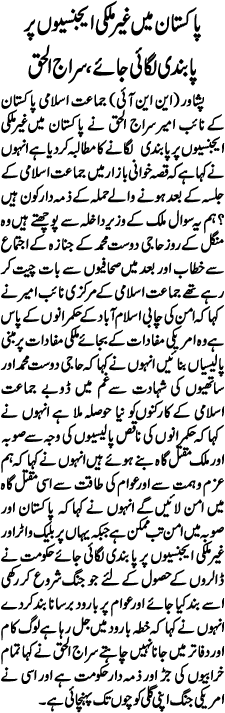 پاکستان میں غیر ملکی ایجنسیوں پر
پابندی لگائی جائے، سراج الحق
پشاور (این این آئی) جماعت اسلامی پاکستان
کے نائب امیر سراج الحق نے پاکستان میں غیر ملکی
ایجنسیوں پر پابندی لگانے کا مطالبہ کر دیا ہے انہوں
نے کہا ہے کہ قصہ خوانی بازار میں جماعت اسلامی کے
جلسہ کے بعد ہونے والے حملہ کے ذمہ دار کون ہیں
؟ ہم یہ سوال ملک کے وزیر داخلہ سے پوچھتے ہیں وہ
منگل کے روز حاجی دوست محمد کے جنازہ کے اجتماع
سے خطاب اور بعد میں صحافیوں سے بات چیت کر
رہے تھے جماعت اسلامی کے مرکزی نائب امیر نے
کہا کہ امن کی چابی اسلام آباد کے حکمرانوں کے پاس
ہے وہ امریکی مفادات کے بجائے ملکی مفادات پر مبنی
پالیسیاں بنائیں انہوں نے کہا کہ حاجی دوست محمد اور
ساتھیوں کی شہادت سے غم میں ڈوبے جماعت
اسلامی کے کارکنوں کو نیا حوصلہ ملا ہے انہوں نے
کہا کہ حکمرانوں کی ناقص پالیسیوں کی وجہ سے صوبہ
اور ملک مقتل گاہ بنے ہوئے ہیں انہوں نے کہا کہ ہم
عزم و ہمت سے اور عوام کی طاقت سے اسی مقتل گاہ
میں امن لائیں گے انہوں نے کہا کہ پاکستان اور
صوبہ میں امن تب ممکن ہے جبکہ یہاں پر بلیک واٹر اور
غیر ملکی ایجنسیوں پر پابندی لگائی جائے حکومت نے
ڈالروں کے حصول کے لئے جو جنگ شروع کر رکھی
اسے بند کیا جائے اور عوام پر بارود برسانا بند کر دے
انہوں نے کہا کہ خطہ بارود میں جل رہا ہے لوگ کام
اور دفاتر میں جانا نہیں چاہتے سراج الحق نے کہا تمام
خرابیوں کی جڑ اور ذمہ دار حکومت ہے اور اس نے
امریکی جنگ اپنی گلی کوچوں تک پہنچائی ہے۔